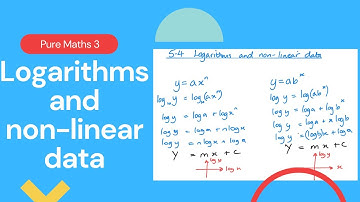 Pure Maths 3
Logarithms
and
non-linear
data
5-4 Logarithms and non-linear data
y=axⁿ
log y = log(axⁿ)
log y = log a + log xⁿ
log y = log a + n log x
log y = n log x + log a
Y = m x + c
log y
log x
y=abˣ
log y = log(abˣ)
log y = log a + log bˣ
log y = log a + x log b
log y = (log b)x + log a
Y = m x + c
log y
x